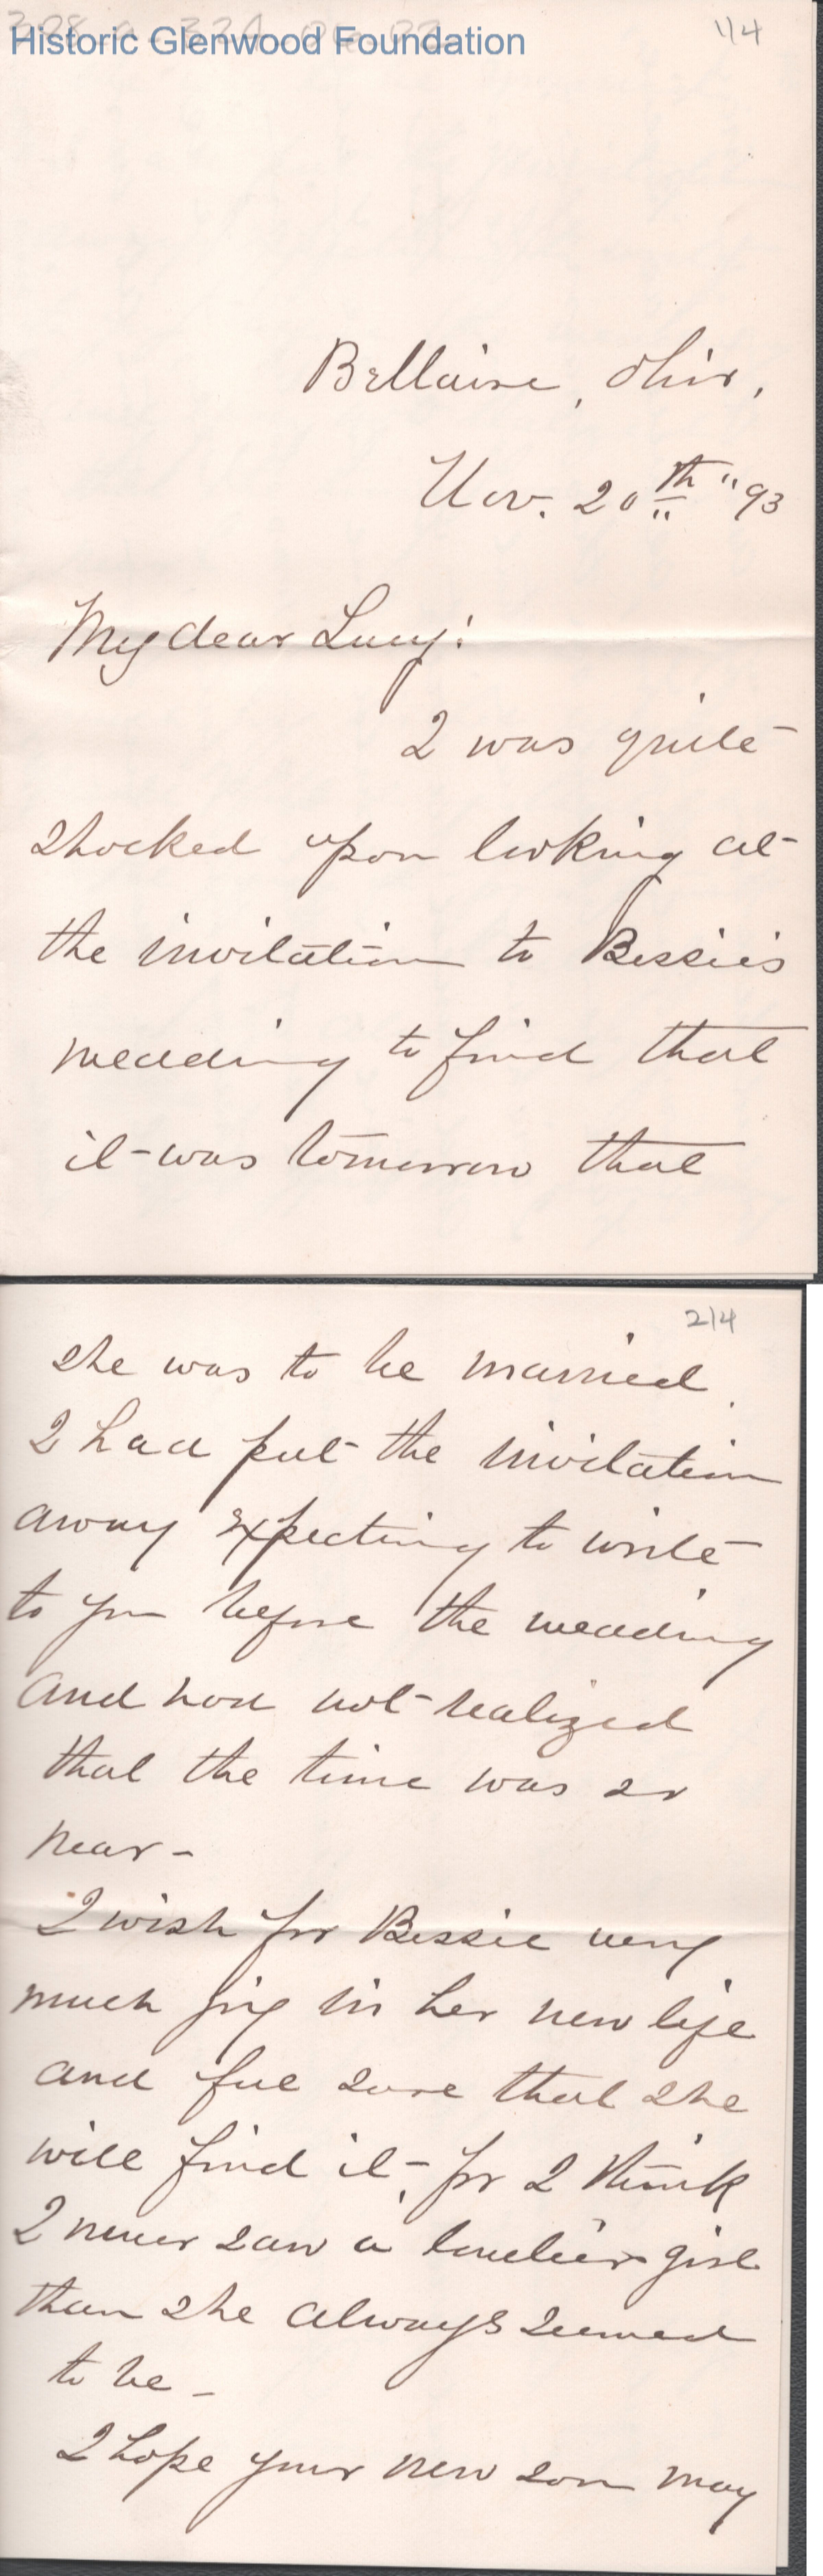 Historic Glenwood Foundation
1/4
Bellaire, Ohio,
Nov. 20th "93
My dear Lucy:
I was quite
shocked upon looking at
the invitation to Bessie's
wedding to find that
it was tomorrow that
2/4
she was to be married.
I had put the invitation
away expecting to write
to you before the wedding
and had not realized
that the time was so
near-
I wish for Bessie very
much joy in her new life
and feel sure that she
will find it, for I think
I never saw a lovelier girl
than she always seemed
to be-
I hope your new son may